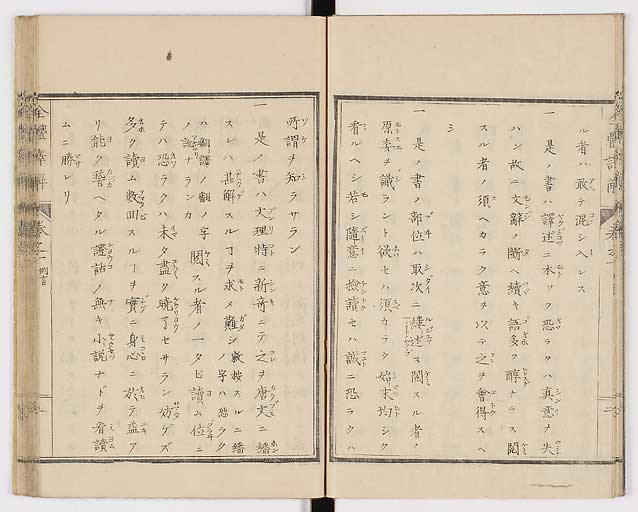 ル者ハ敢テ混シヘレス
一 是ノ書ハ譯述ニ本ツク恐ラクハ真意ヲ失
ハン故ニ文辭ノ斷ヘ續キ語多ク醇ナラス閲
スル者ノ須ヘカラク意ヲ以テ之ヲ會得スヘ
シ
一 是ノ書ノ部位ハ取次ニ縷述ス閲スル者ノ
原委ヲ識ラント欲セハ須カラク始末均シク
看ルヘシ若シ隨意ニ檢讀セハ誠ニ恐ラクハ
所謂ヲ知ラサラン
一 是ノ書ハ文理特ニ新奇ニテ之ヲ唐文ニ繙
スレハ甚解スルヿヲ求メ難シ
ハ翻譯ノ翻ノ字ノ誤ナランカ
閲スル者ノ一タヒ讀ム位ニ
テハ恐ラクハ未タ盡ク曉了セサラン妨ケズ
多ク讀ム數回スルヿヲ實ニ身心ニ於テ益ア
リ能ク稽ヘタル諢詀ノ無キ小説ナドヲ看讀
ムニ勝レリ
全體 解 卷之一 例言